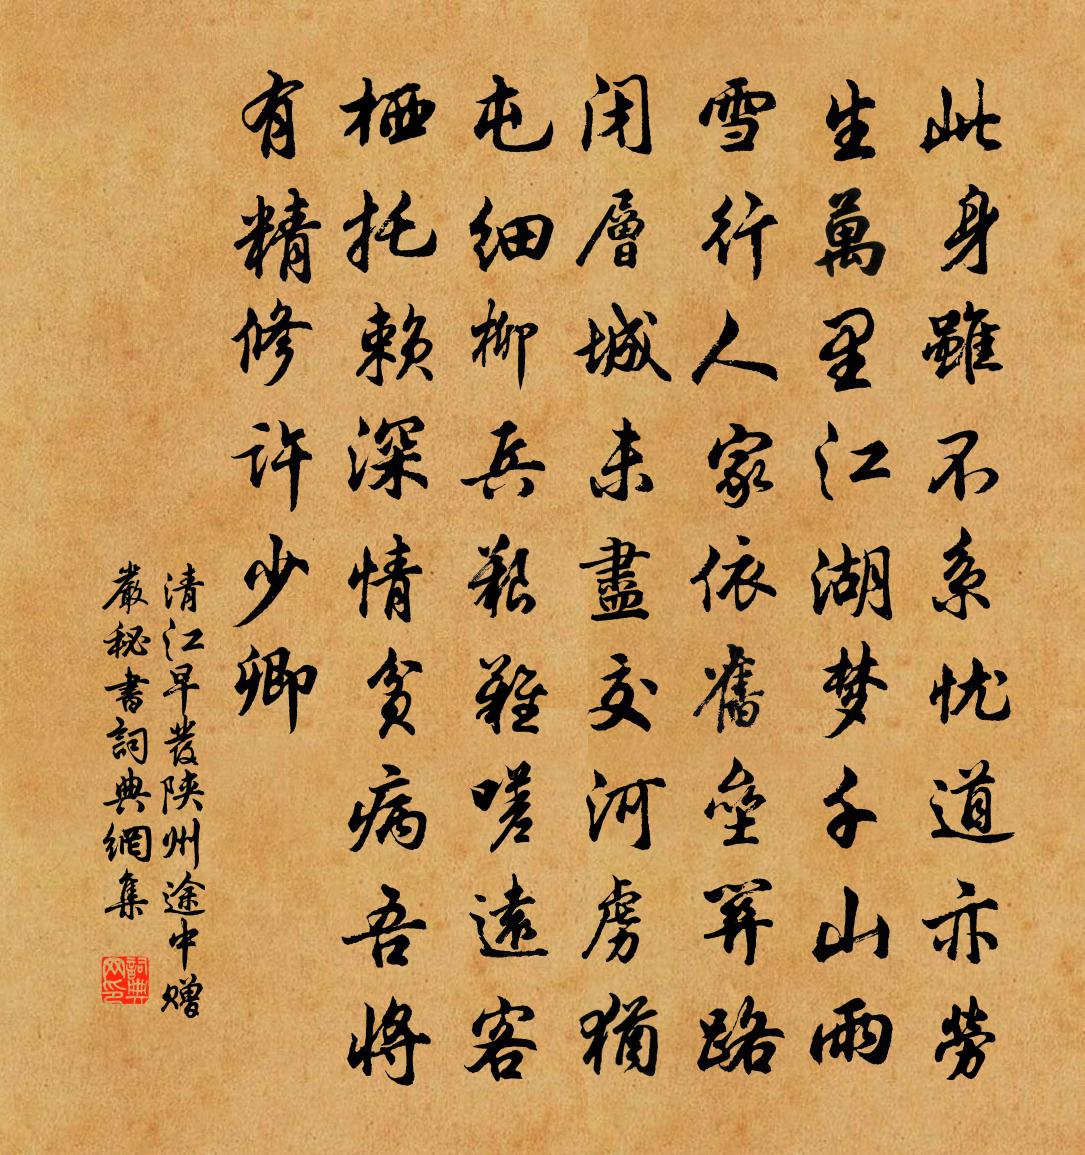 此身雖不系忧道亦勞
生萬里江湖梦千山雨
雪行人家依舊壘関路
闭層城未盡交河虜猶
屯細柳兵艱難嗟遠客
栖托赖深情貧病吾將
有精修許少卿
清江早發陕州途中赠
嚴秘書詞典網集
詞典网印